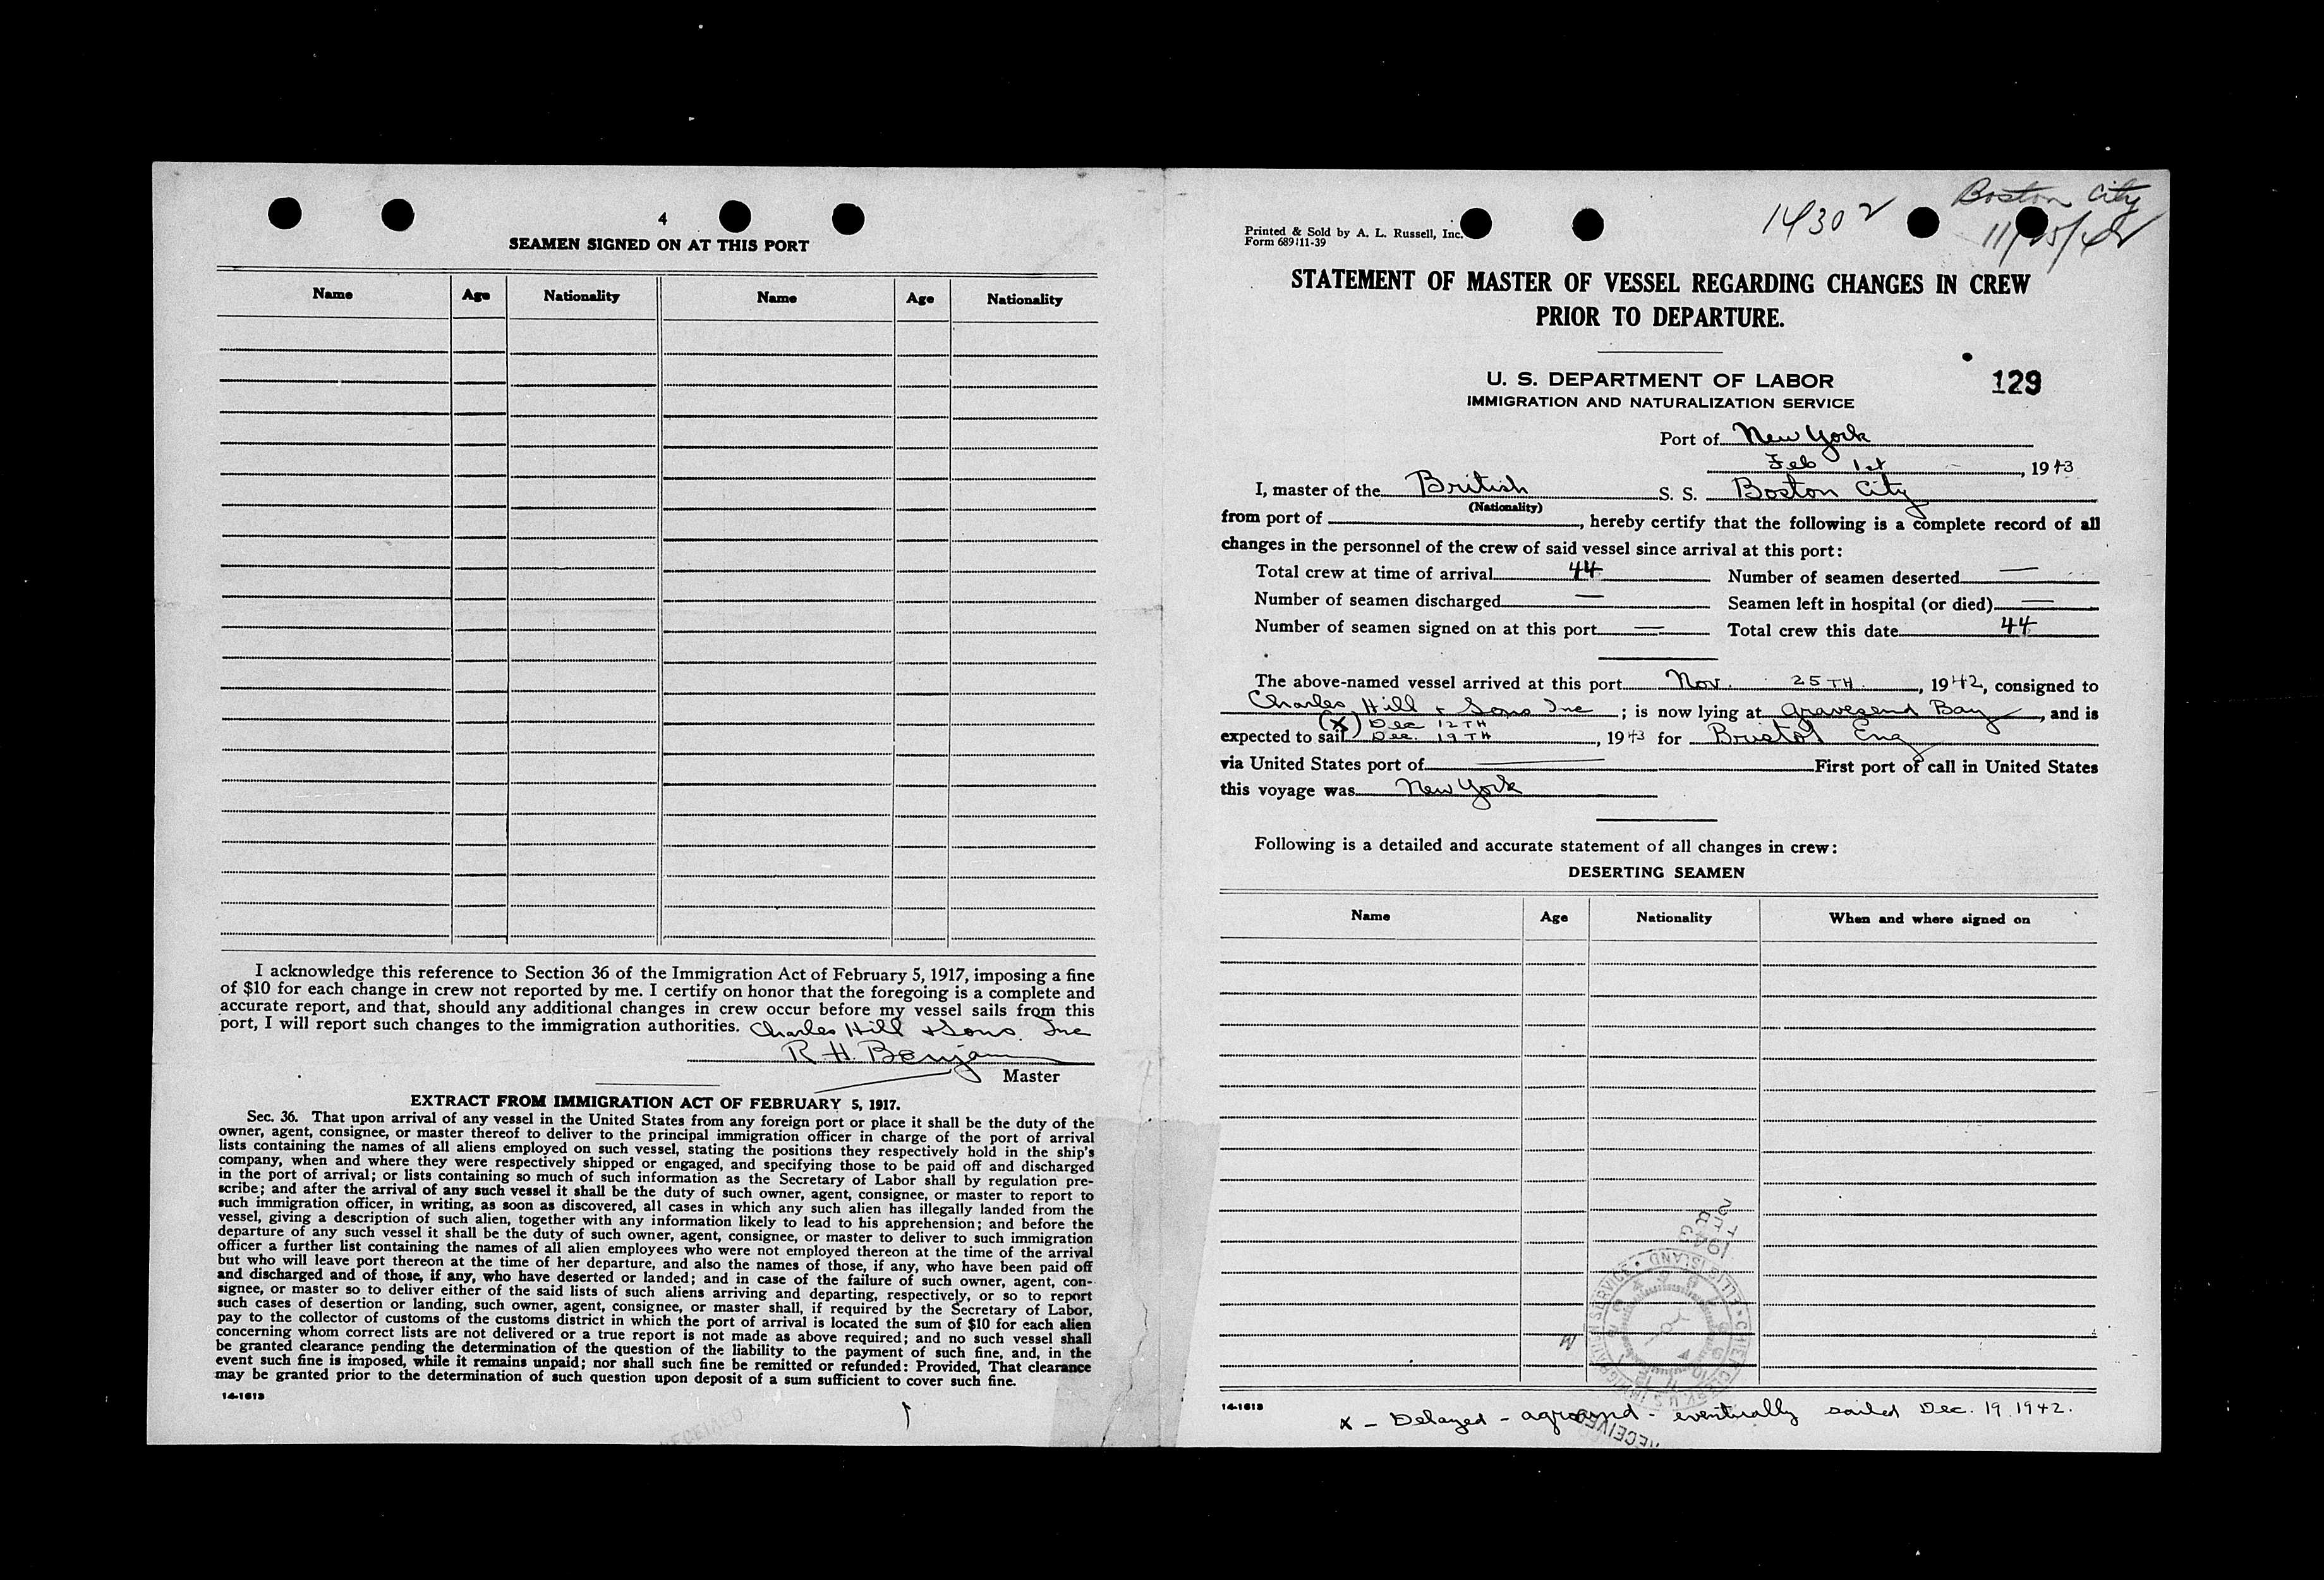 4
SEAMEN SIGNED ON AT THIS PORT
Name Age Nationality Name Age Nationality
I acknowledge this reference to Section 36 of the Immigration Act of February 5, 1917, imposing a fine
of $10 for each change in crew not reported by me. I certify on honor that the foregoing is a complete and
accurate report, and that, should any additional changes in crew occur before my vessel sails from this
port, I will report such changes to the immigration authorities. Charles Hill + Sons Inc
R H. Benjam
Master
EXTRACT FROM IMMIGRATION ACT OF FEBRUARY 5, 1917.
Sec. 36. That upon arrival of any vessel in the United States from any foreign port or place it shall be the duty of the
owner, agent, consignee, or master thereof to deliver to the principal immigration officer in charge of the port of arrival
lists containing the names of all aliens employed on such vessel, stating the positions they respectively hold in the ship's
company, when and where they were respectively shipped or engaged, and specifying those to be paid off and discharged
in the port of arrival; or lists containing so much of such information as the Secretary of Labor shall by regulation pre-
scribe; and after the arrival of any such vessel it shall be the duty of such owner, agent, consignee, or master to report to
such immigration officer, in writing, as soon as discovered, all cases in which any such alien has illegally landed from the
vessel, giving a description of such alien, together with any information likely to lead to his apprehension; and before the
departure of any such vessel it shall be the duty of such owner, agent, consignee, or master to deliver to such immigration
officer a further list containing the names of all alien employees who were not employed thereon at the time of the arrival
but who will leave port thereon at the time of her departure, and also the names of those, if any, who have been paid off
and discharged and of those, if any, who have deserted or landed; and in case of the failure of such owner, agent, con-
signee, or master so to deliver either of the said lists of such aliens arriving and departing, respectively, or so to report
such cases of desertion or landing, such owner, agent, consignee, or master shall, if required by the Secretary of Labor,
pay to the collector of customs of the customs district in which the port of arrival is located the sum of $10 for each alien
concerning whom correct lists are not delivered or a true report is not made as above required; and no such vessel shall
be granted clearance pending the determination of the question of the liability to the payment of such fine, and, in the
event such fine is imposed, while it remains unpaid; nor shall such fine be remitted or refunded: Provided, That clearance
may be granted prior to the determination of such question upon deposit of a sum sufficient to cover such fine.
14-1613
Boston City
14302
11/25/42
Printed & Sold by A. L. Russell, Inc.
Form 689:11-39
STATEMENT OF MASTER OF VESSEL REGARDING CHANGES IN CREW
PRIOR TO DEPARTURE.
U. S. DEPARTMENT OF LABOR
129
IMMIGRATION AND NATURALIZATION SERVICE
Port of New York
Feb 1st, 1943
I, master of the British S. S. Boston City
(Nationality)
from port of , hereby certify that the following is a complete record of all
changes in the personnel of the crew of said vessel since arrival at this port:
Total crew at time of arrival 44 Number of seamen deserted —
Number of seamen discharged — Seamen left in hospital (or died) —
Number of seamen signed on at this port — Total crew this date 44
The above-named vessel arrived at this port Nov. 25TH, 1942, consigned to
Charles Hill + Sons Inc; is now lying at Gravesend Bay, and is
(X) Dec 12TH
expected to sail Dec. 19TH, 1943 for Bristol Eng
via United States port of — First port of call in United States
this voyage was New York
Following is a detailed and accurate statement of all changes in crew:
DESERTING SEAMEN
Name Age Nationality When and where signed on
1943
ELLIS ISLAND
RECEIVED
14-1613
x - Delayed - aground - eventually sailed Dec. 19. 1942.